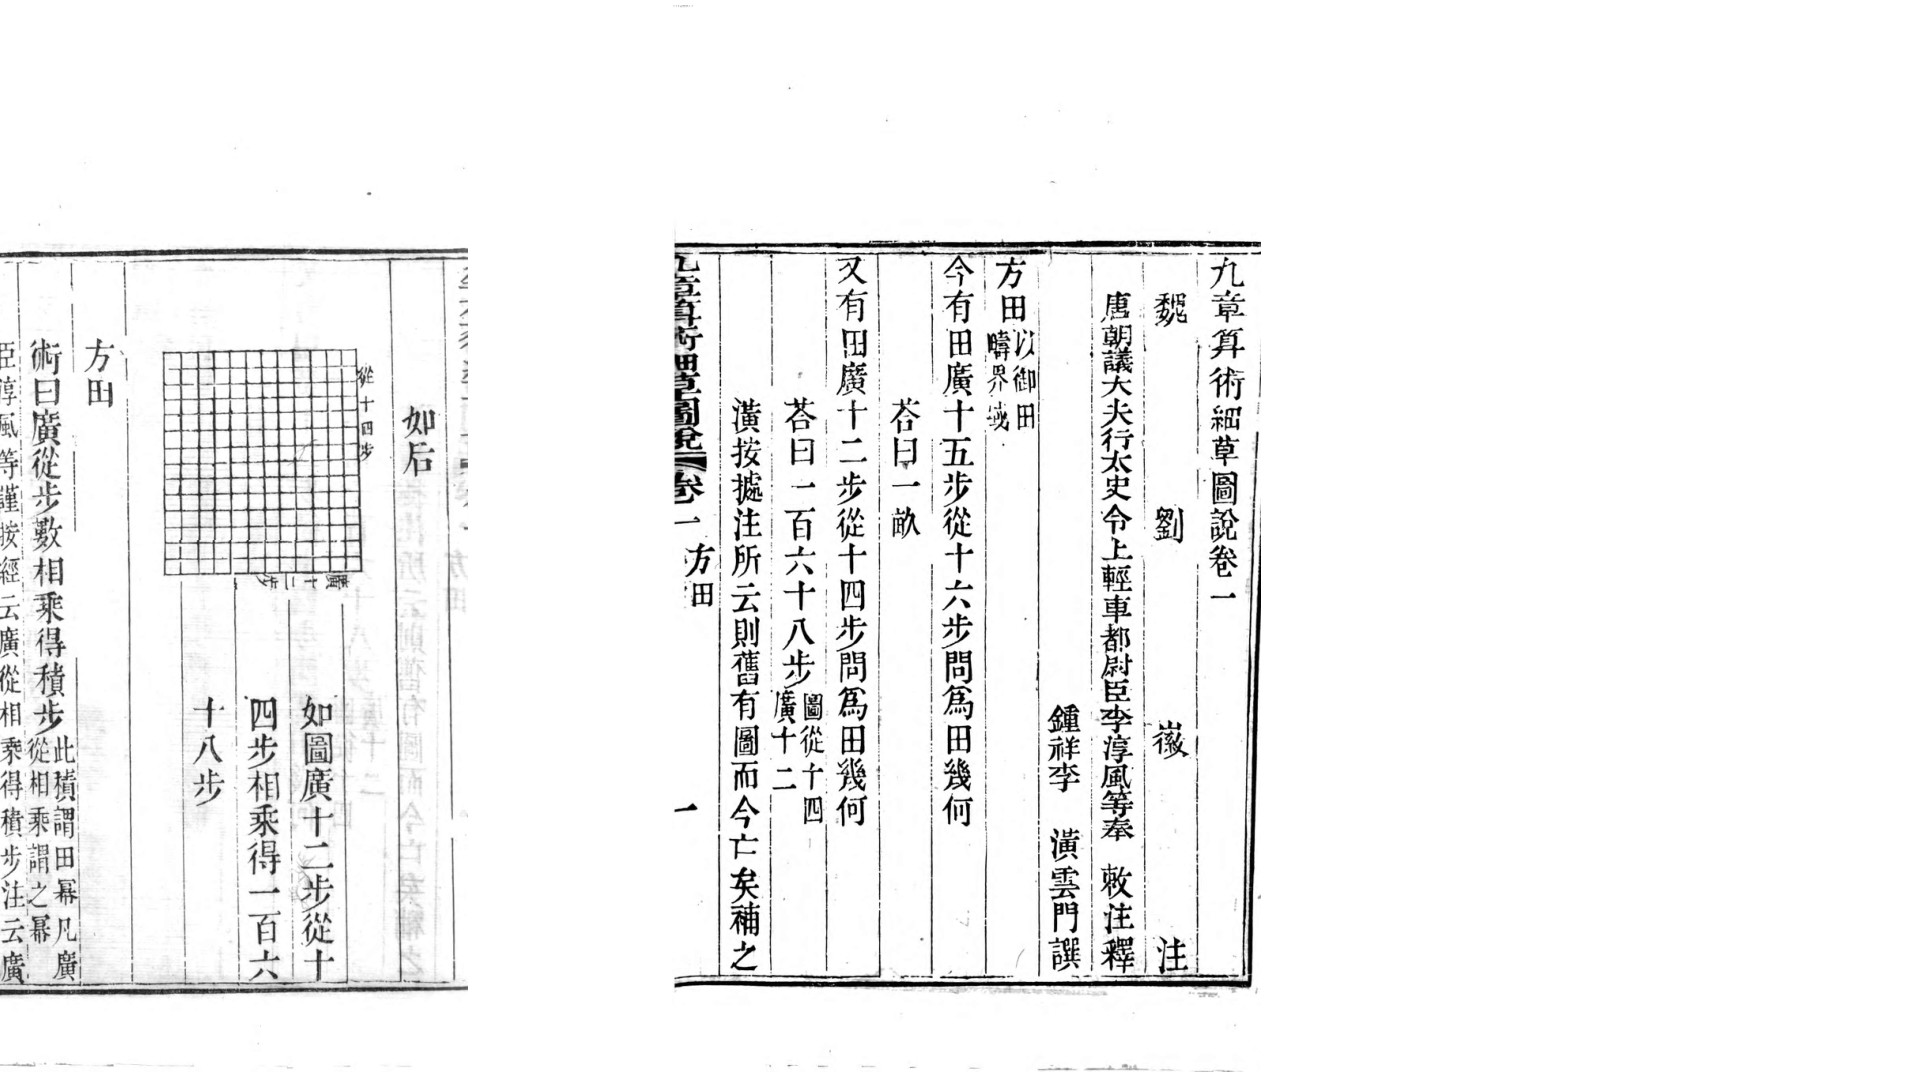 九章算術細草圖說卷一
魏 劉 徽 注
唐朝議大夫行太史令上輕車都尉臣李淳風等奉 敕注釋
鍾祥李 潢雲門譔
方田以御田疇界域
今有田廣十五步從十六步問爲田幾何
荅曰一畝
又有田廣十二步從十四步問爲田幾何
荅曰一百六十八步圖從十四廣十二
潢按據注所云則舊有圖而今亡矣補之
九章算術細草圖說 卷一 方田 一
如后
從十四步
廣十二步
如圖廣十二步從十
四步相乘得一百六
十八步
方田
術曰廣從步數相乘得積步此積謂田冪凡廣從相乘謂之冪
臣淳風等謹按經云廣從相乘得積步注云廣